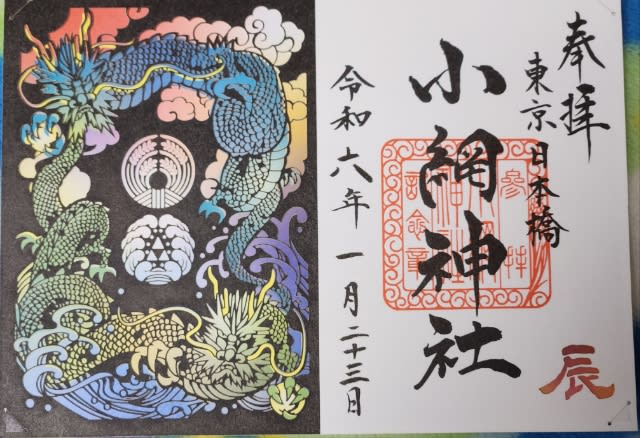 奉拝
東京日本橋
小網神社
参拝
記念章
令和六年一月二十三日
辰